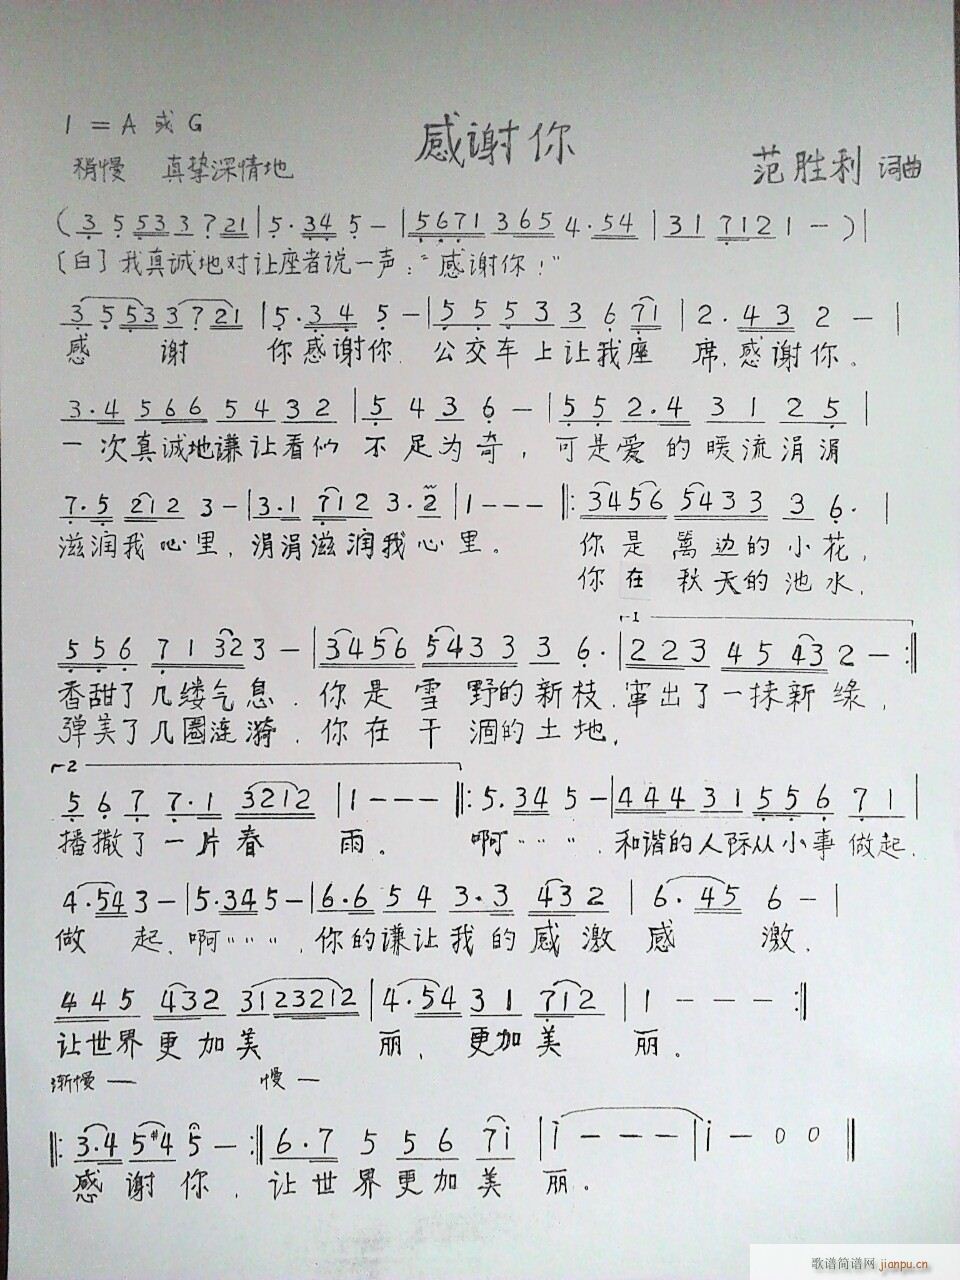 1=A 或 G
感谢你
稍慢 真挚深情地
范胜利 词曲
(3 5 53 3 7 21 | 5·34 5 – | 5671 365 4·54 | 31 7121 – )|
[白] 我真诚地对让座者说一声:"感谢你!"
3 5 53 3 7 21 | 5·3 4 5 – | 5 5 5 3 3 6 71 | 2·43 2 – |
感 谢 你感谢你. 公交车上让我座 席,感谢你。
3·4 566 54 32 | 5 4 3 6 – | 55 2·4 31 25 |
一次真诚地谦让看似 不足为奇, 可是爱的暖流涓涓
7·5 212 3 – | 3·1 712 3·2 | 1 – – – ‖: 3456 5433 3 6· |
滋润我心里,涓涓滋润我心里。 你是篱边的小花,
你在秋天的池水,
556 71323 – | 3456 5433 3 6· | 223 45432 – :‖
1
香甜了几缕气息.你是雪野的新枝.窜出了一抹新绿,
弹美了几圈涟漪.你在干涸的土地,
2
5 6 7 7·1 3212 | 1 – – – ‖: 5·34 5 – | 444 31 556 71 |
播撒了一片春 雨。 啊"""".和谐的人际从小事做起.
4·54 3 – | 5·34 5 – | 6·6 54 3·3 432 | 6·45 6 – |
做 起,啊"""".你的谦让我的感激感 激.
445 432 3123212 | 4·54 31 712 | 1 – – – :‖
让世界更加美 丽, 更加美 丽。
渐慢 — 慢 —
‖: 3·4 5#4 5 – :‖ 6·7 5 5 6 7i | i – – – | i – 0 0 ‖
感谢你. 让世界更加美 丽。
歌谱简谱网 jianpu.cn